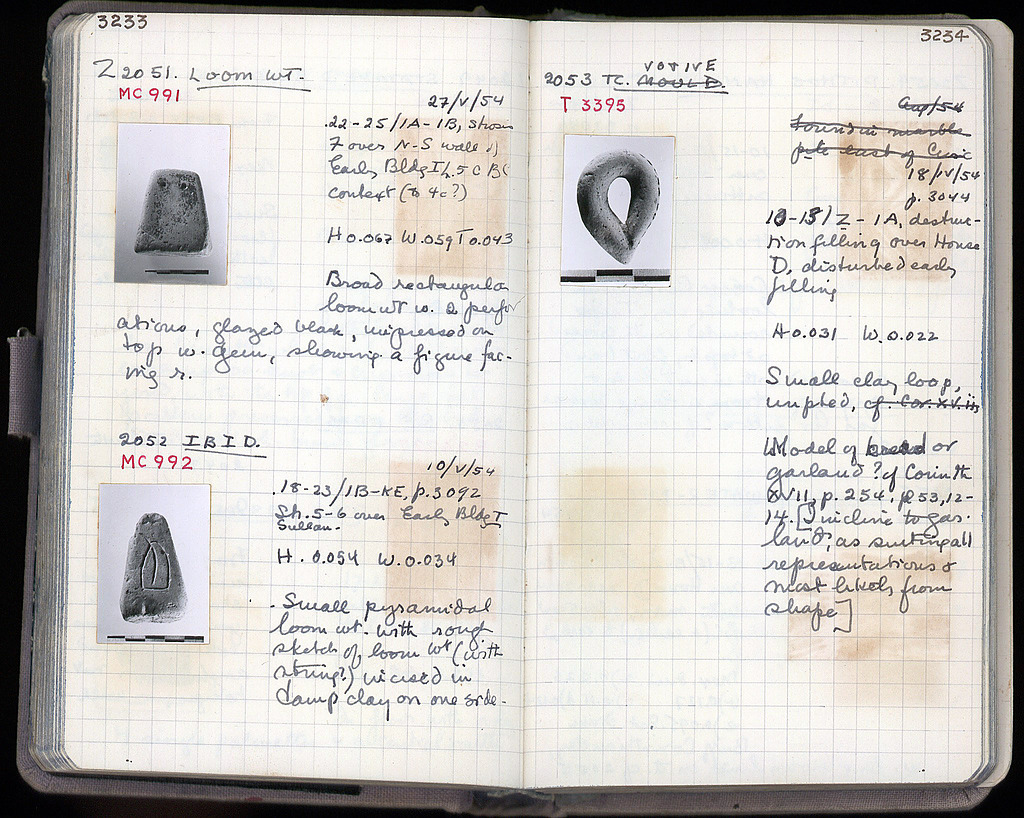 3233
Z 2051. Loom wt.
MC 991
27/V/54
.22-25/1A-1B, strosis
7 over N-S wall of
Early Bldg I, 5 c BC
context (to 4c?)
H 0.067 W.059 T 0.043
Broad rectangular
loom wt w. 2 perfor
ations, glazed black, impressed on
top w. gem, showing a figure fac-
ing r.
2052 IBID.
MC 992
10/V/54
.18-23/1B-KE, p.3092
Str. 5-6 over Early Bldg I
H. 0.054 W. 0.034
. Small pyramidal
loom wt. with rough
sketch of loom wt (with
string?) incised in
damp clay on one side-
3234
VOTIVE
2053 TC. MOULD.
T 3395
Aug/54
Found in marble
pile east of Civic
18/IV/54
p. 3044
13-15/Z-1A, destruc-
tion filling over House
D, disturbed early
filling
H 0.031 W. 0.022
Small clay loop,
unptd, cf. Cor. XV. iii
Model of bread or
garland? cf Corinth
XVII, p. 254, pl 53, 12-
14. [I incline to gar-
land, as suiting all
representations &
most likely from
shape]